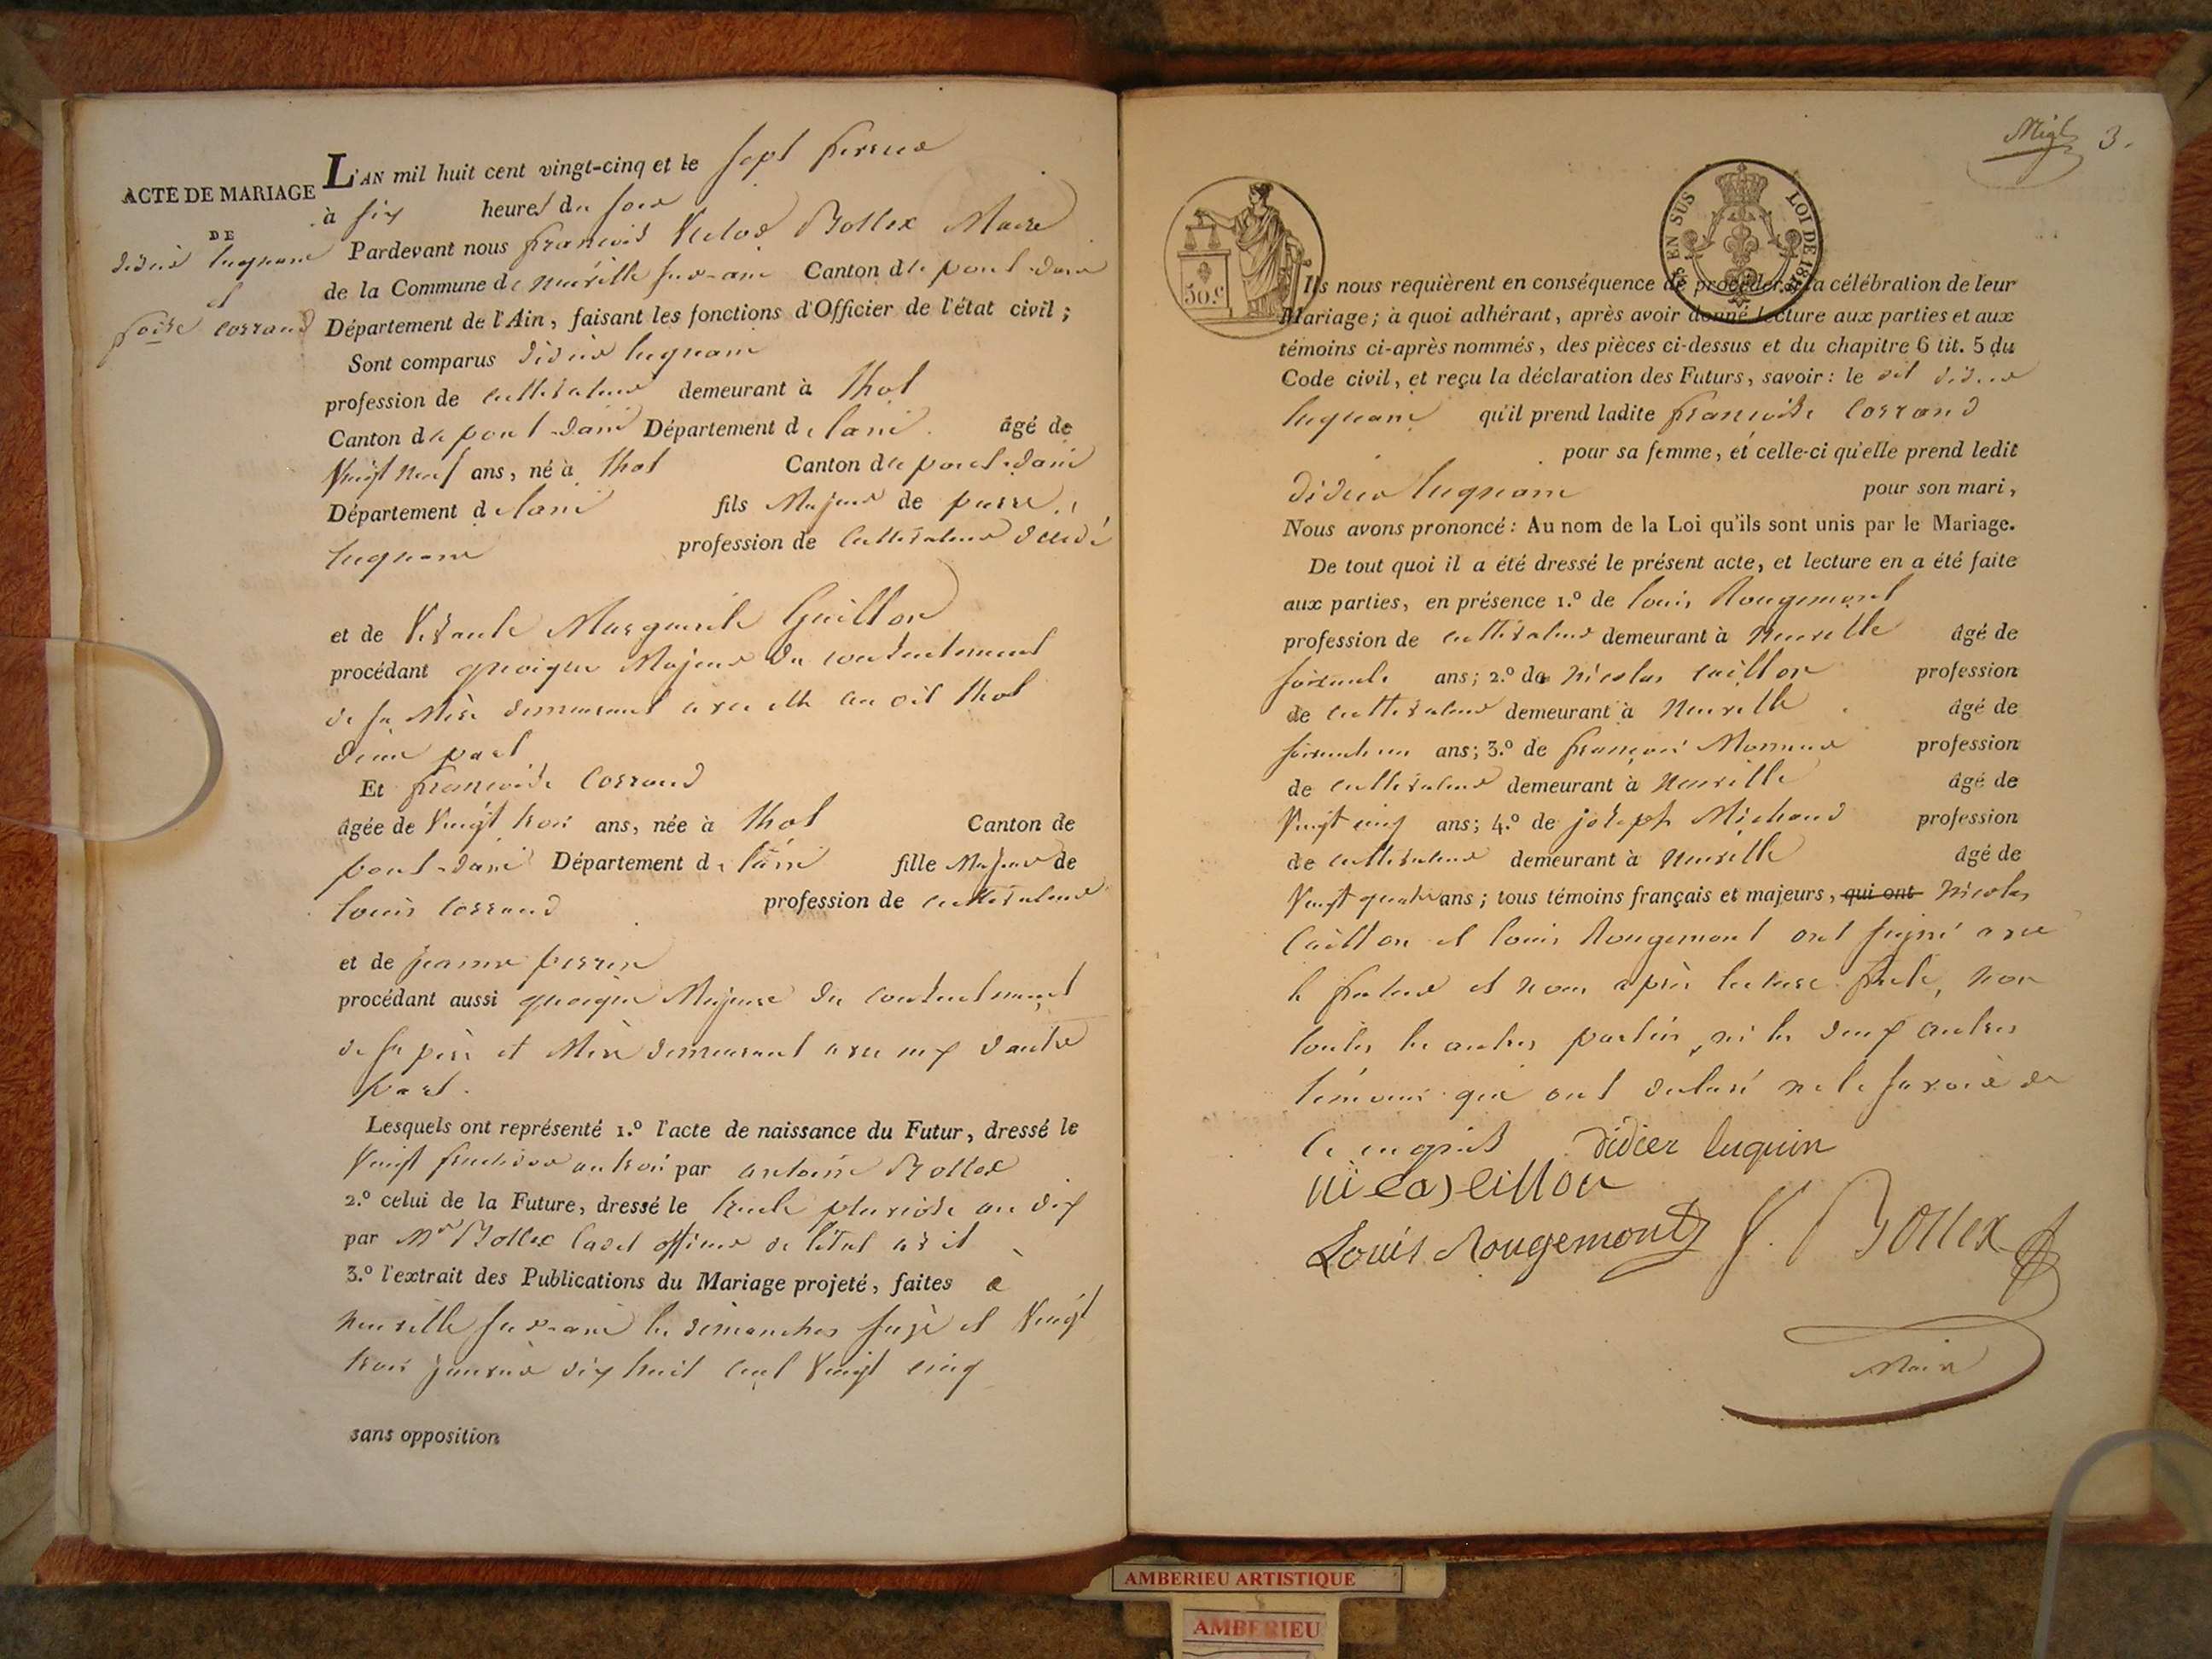 ACTE DE MARIAGE
DE
didier luquain
et
foise corrand
L'AN mil huit cent vingt-cinq et le sept fevrier
à six heures du soir
Pardevant nous françois Victor Bollex Maire
de la Commune de neuville sur-ain Canton de pont-dain
Département de l'Ain, faisant les fonctions d'Officier de l'état civil ;
Sont comparus didier luquain
profession de cultivateur demeurant à thol
Canton de pont-dain Département de lain âgé de
Vingt neuf ans, né à thol Canton de pont-dain
Département de lain fils Majeur de pierre
luquain profession de cultivateur décédé
et de Marguerite Guillon
procédant quoique Majeur du contentement
de sa Mère demeurant avec elle au dit thol
dune part
Et françoise Corrand
âgée de Vingt trois ans, née à thol Canton de
pont-dain Département de lain fille Majeure de
louis Corrand profession de cultivateur
et de jeanne perrin
procédant aussi quoique Majeure du contentement
de ses père et Mère demeurant avec eux d'autre
part.
Lesquels ont représenté 1.º l'acte de naissance du Futur, dressé le
Vingt fructidor an trois par antoine Bollex
2.º celui de la Future, dressé le trente pluviose an dix
par Mr Bollex Cadet officier de létat civil
3.º l'extrait des Publications du Mariage projeté, faites à
neuville sur-ain les dimanches seize et Vingt
trois janvier dix huit cent Vingt cinq
sans opposition
3.
50.c
EN SUS LOI DE
Ils nous requièrent en conséquence de procéder à la célébration de leur
Mariage ; à quoi adhérant, après avoir donné lecture aux parties et aux
témoins ci-après nommés, des pièces ci-dessus et du chapitre 6 tit. 5 du
Code civil, et reçu la déclaration des Futurs, savoir : le dit didier
luquain qu'il prend ladite françoise Corrand
pour sa femme, et celle-ci qu'elle prend ledit
didier luquain pour son mari,
Nous avons prononcé : Au nom de la Loi qu'ils sont unis par le Mariage.
De tout quoi il a été dressé le présent acte, et lecture en a été faite
aux parties, en présence 1.º de louis Rougemont
profession de cultivateur demeurant à neuville âgé de
soixante ans ; 2.º de nicolas caillon profession
de cultivateur demeurant à neuville âgé de
soixante un ans ; 3.º de françois profession
de cultivateur demeurant à neuville âgé de
Vingt cinq ans ; 4.º de joseph Michaud profession
de cultivateur demeurant à neuville âgé de
Vingt quatre ans ; tous témoins français et majeurs, qui ont nicolas
Caillon et louis Rougemont ont signé avec
le futur et nous après lecture faite, non
toutes les autres parties, ni les deux autres
témoins qui ont déclaré ne le savoir de
ce enquis didier luquin
Louis Rougemont V. Bollex
Maire
AMBERIEU ARTISTIQUE
AMBERIEU